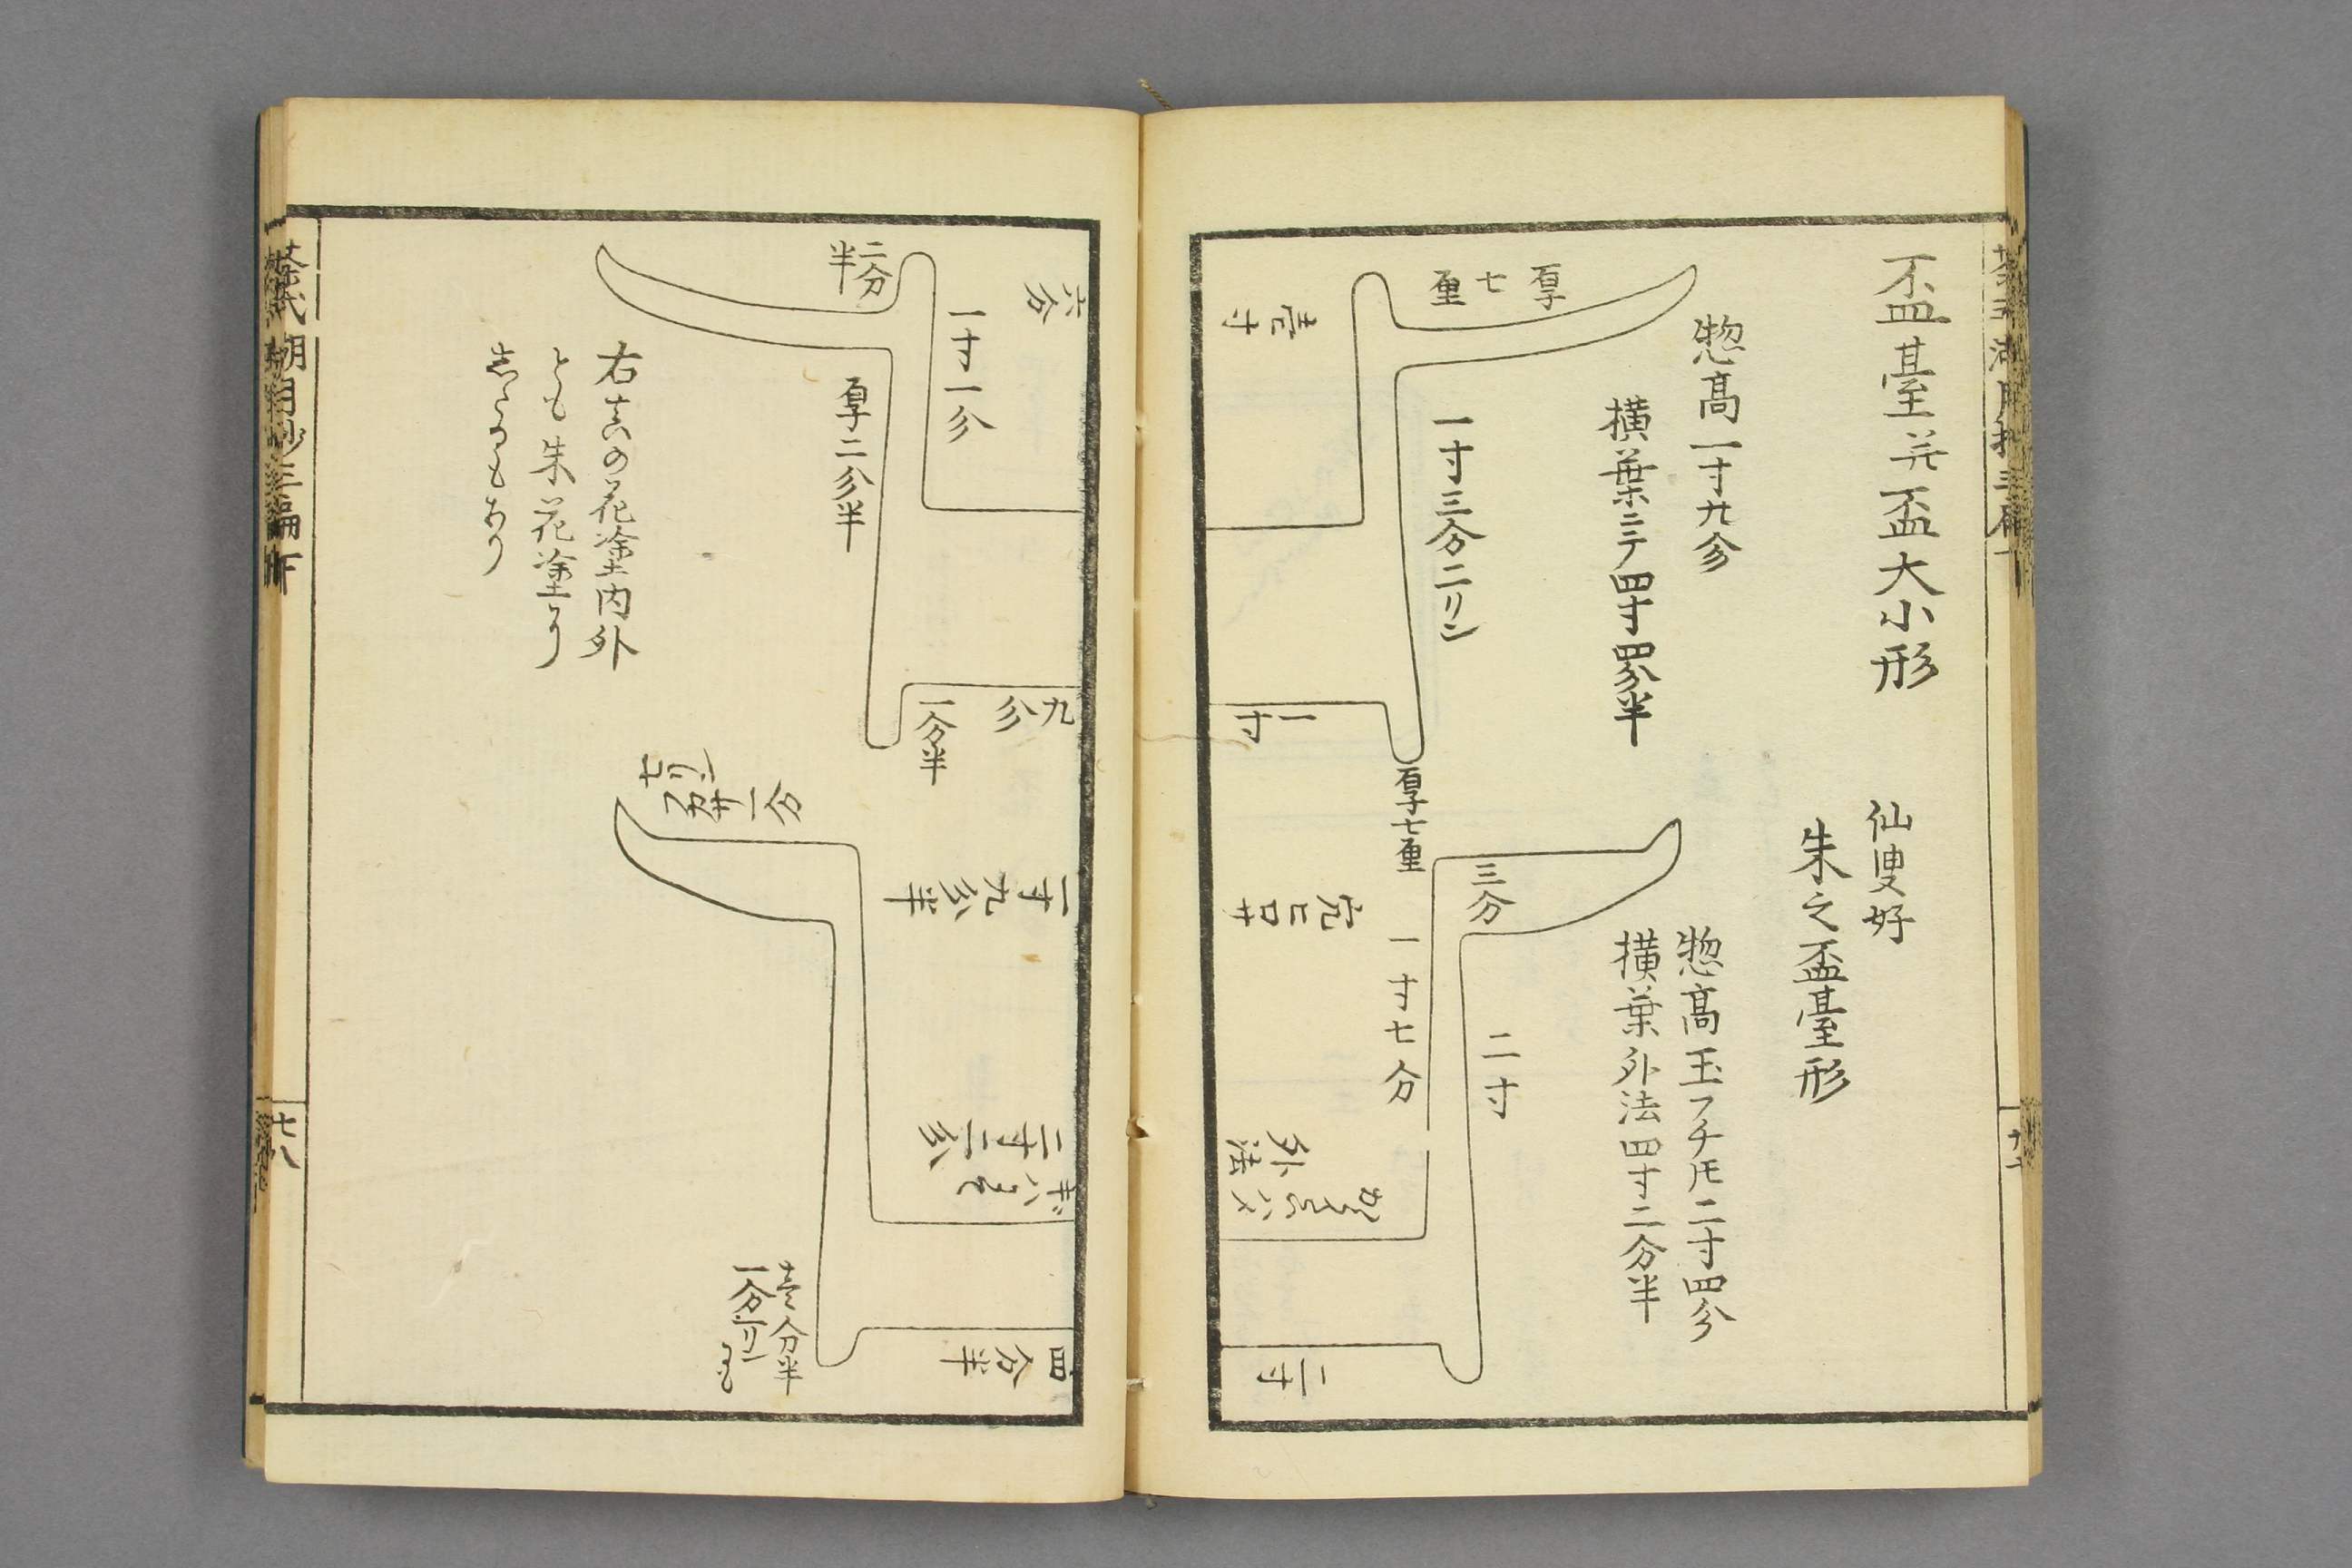 盃臺并盃大小形
仙叟好
朱之盃臺形
惣髙一寸九分
横葉ニテ四寸四分半
厚七厘
壱寸
一寸三分二リン
一寸
厚七厘
惣髙玉フチ𪜈二寸四分
横葉外法四寸二分半
三分
穴ヒロサ
一寸七分
二寸
外法
二寸
六分
二分半
一寸一分
厚二分半
九分
一分半
右真の花塗内外
とも朱花塗り
志たるもあり
一寸九分半
二寸一分
四分半
壱分半
七八